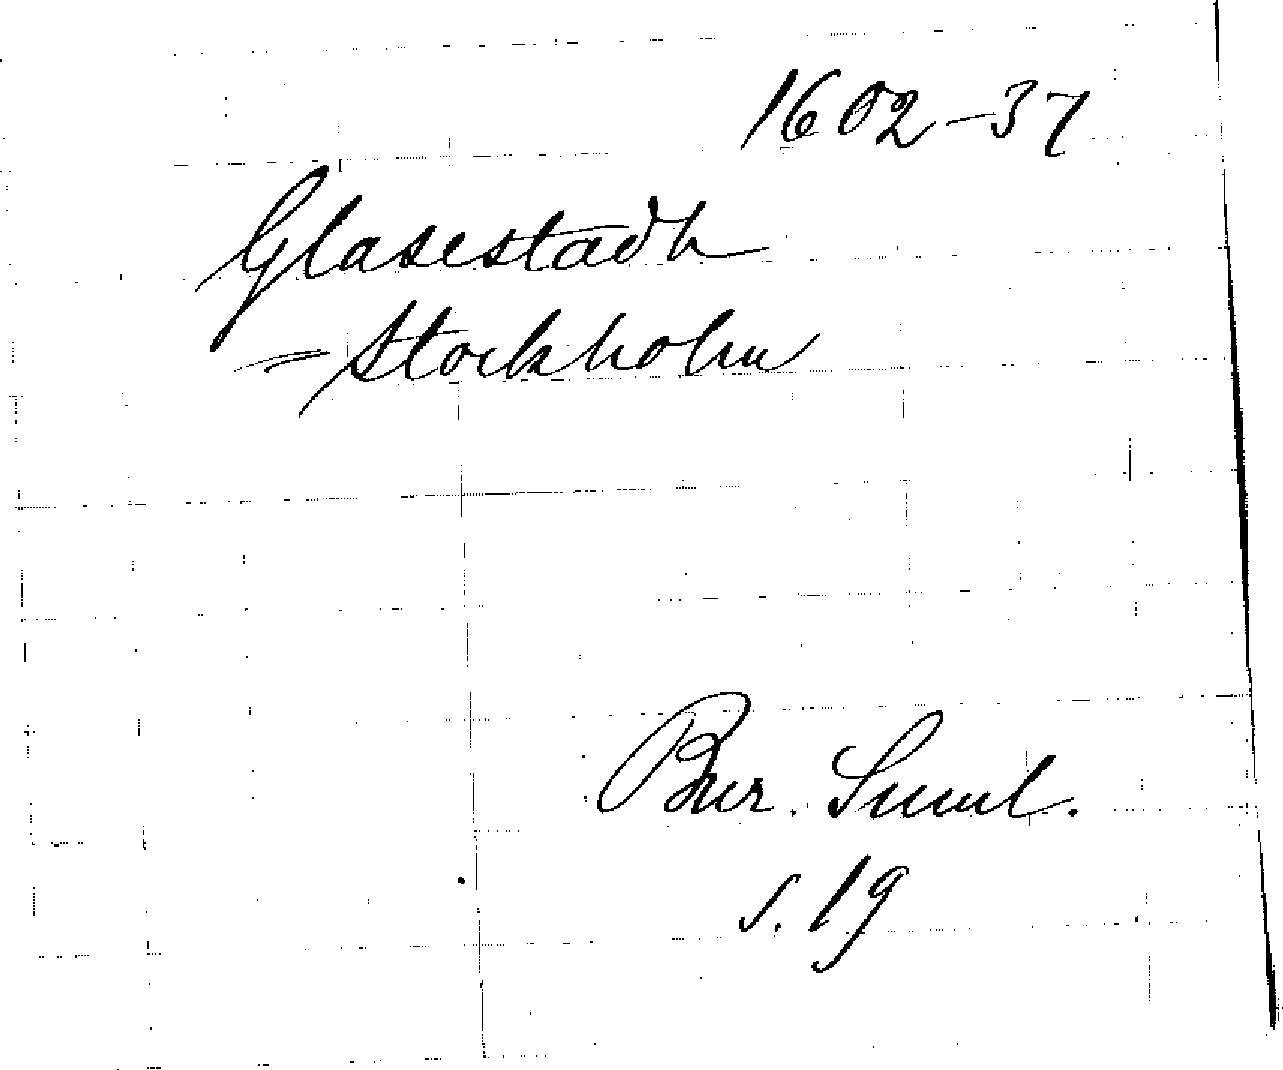 1602-37
Glasestadh
= Stockholm
Bur. Suml.
s. 19